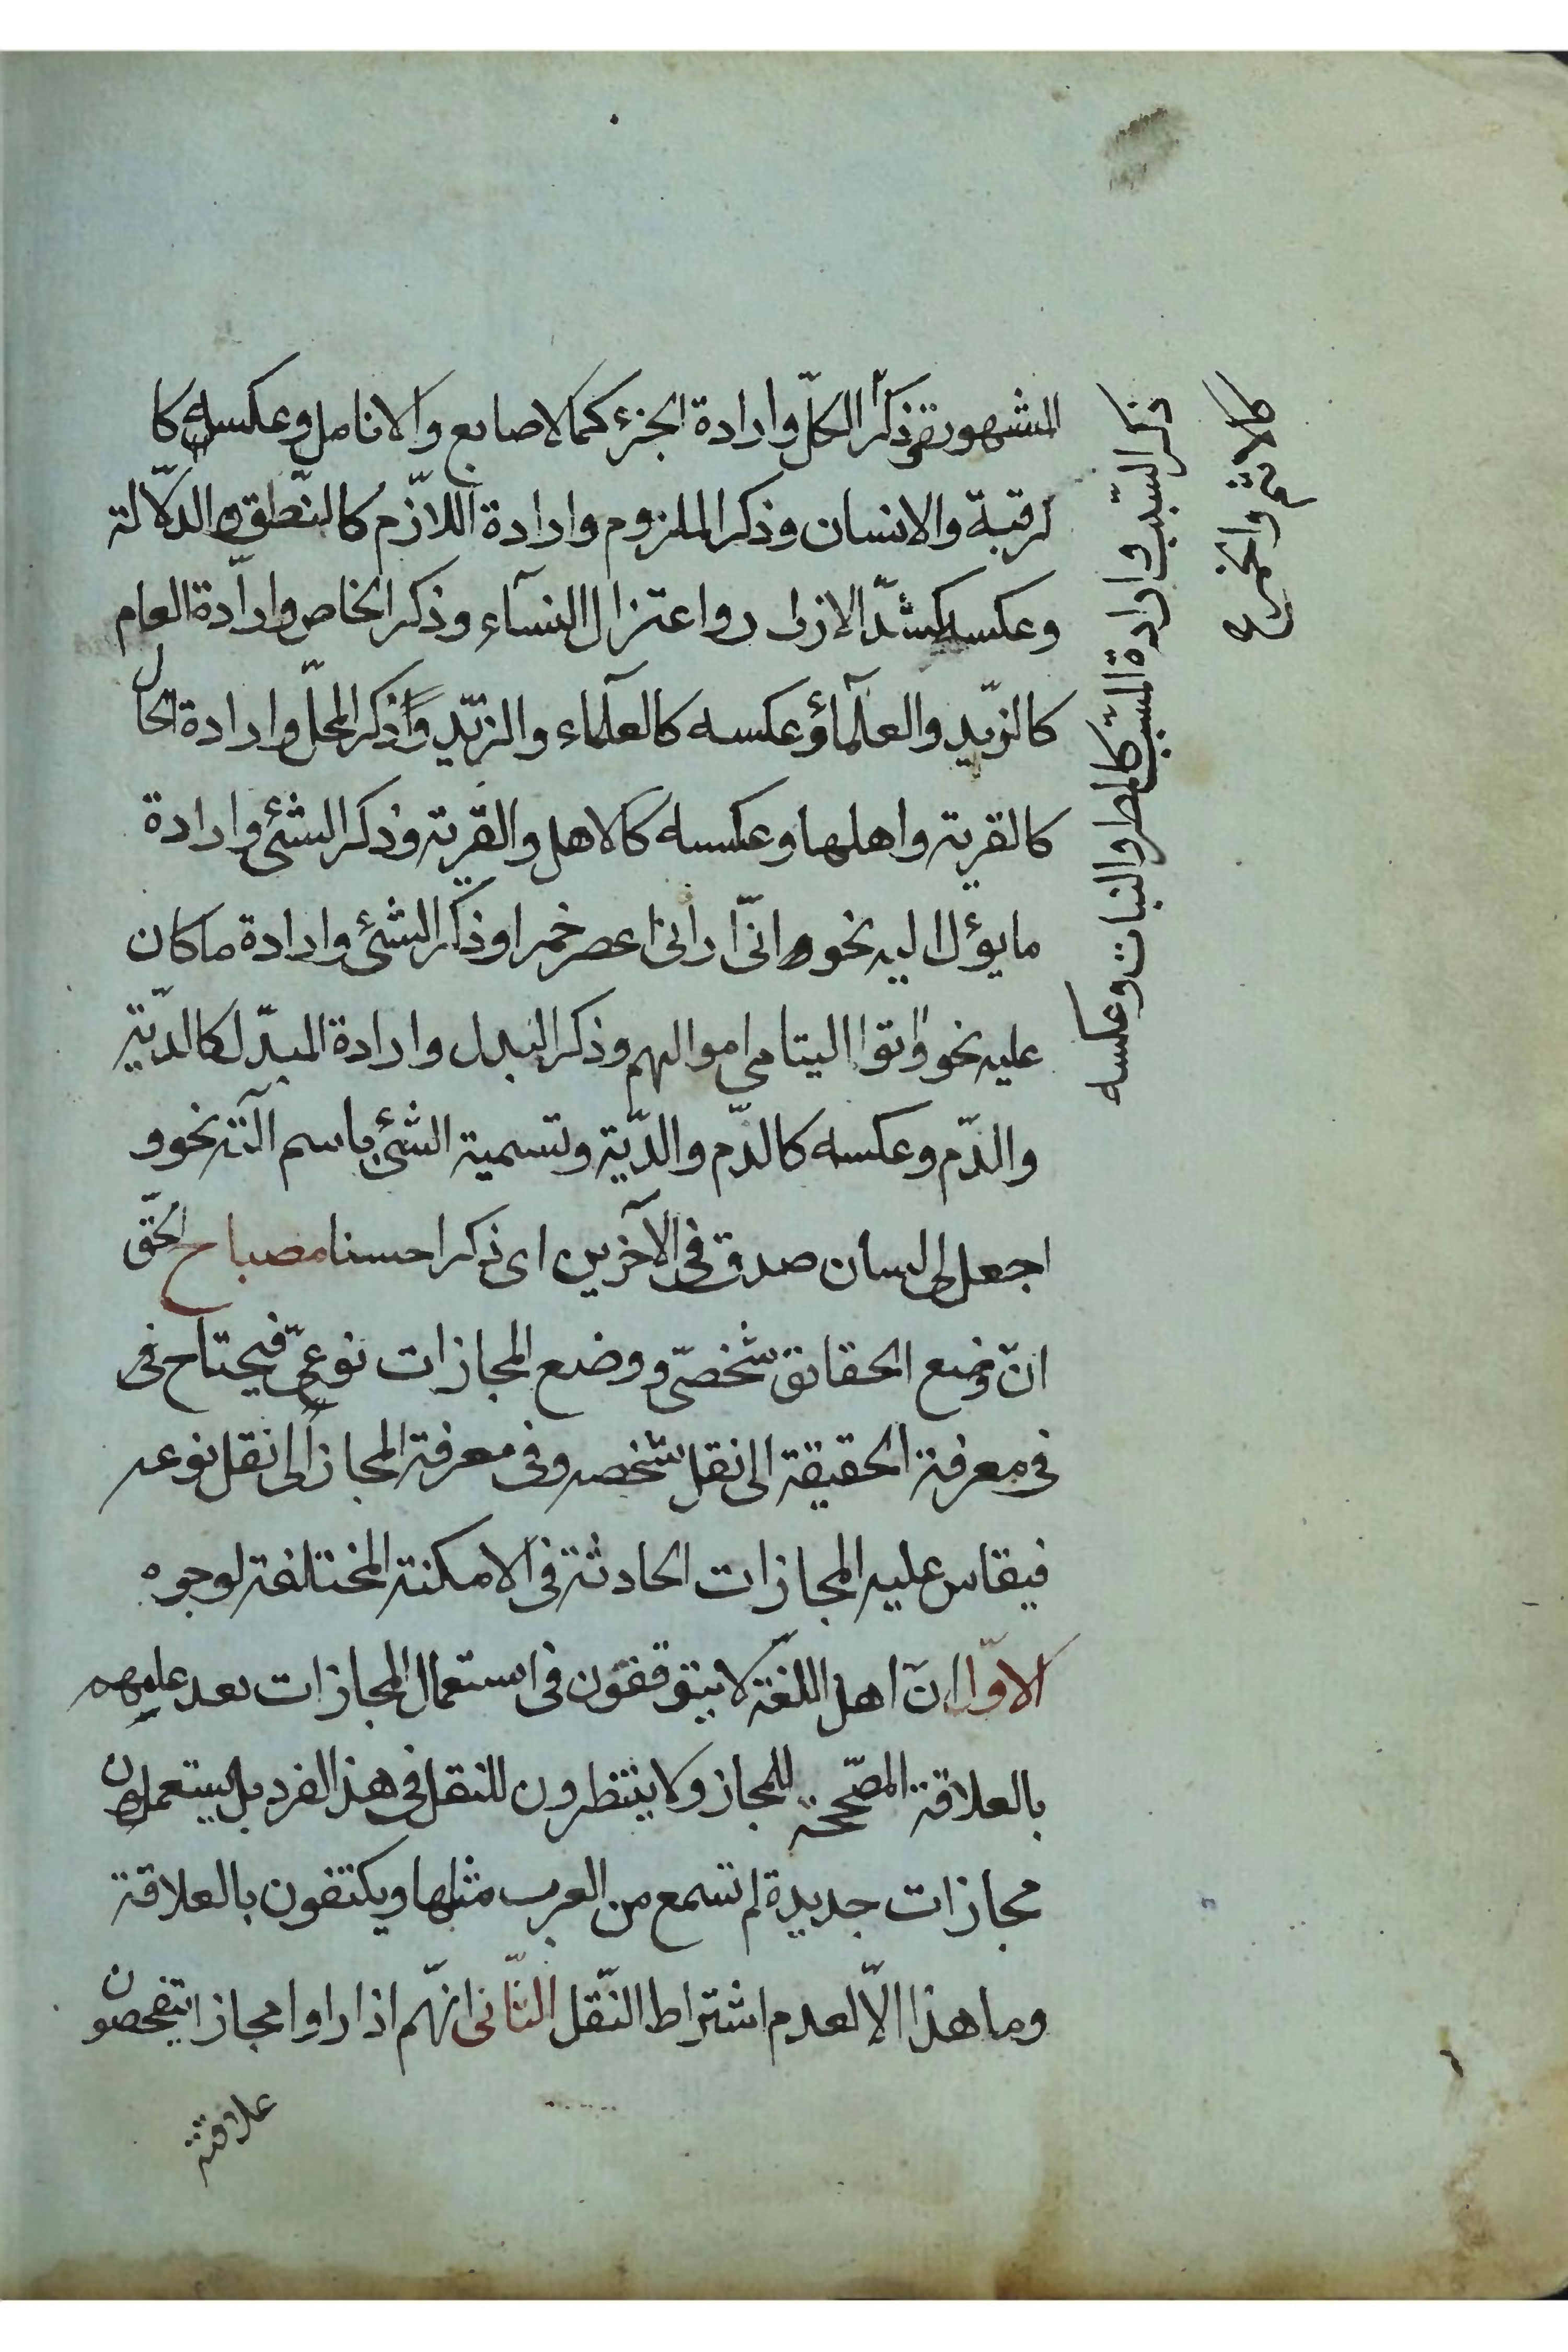 المشهورة ذكر الكلّ وارادة الجزء كما لاصابع والانامل وعكسه كا
لرقبة والانسان وذكر الملزوم وارادة اللّازم كالنّطق والدّلالة
وعكسه كشدّ الازار واعتزال النسآء وذكر الخاص وارادة العام
كالزّيد والعلمآء وعكسه كالعلمآء والزّيد وذكر المحلّ وارادة الحال
كالقرية واهلها وعكسه كالاهل والقرية وذكر الشئ وارادة
ما يؤل اليه نحو انّى ارانى اعصر خمرا وذكر الشئ وارادة ما كان
عليه نحو واتوا اليتامى اموالهم وذكر البدل وارادة المبدّل كالدّية
والدّم وعكسه كالدّم والدّية وتسمية الشئ باسم آلته نحو و
اجعل لى لسان صدق فى الآخرين اى ذكرا حسنا مصباح الحقّ
انّ وضع الحقائق شخصّى و وضع المجازات نوعىّ فيحتاج فى
فى معرفة الحقيقة الى نقل شخصه وفى معرفة المجاز الى نقل نوعه
فيقاس عليه المجازات الحادثة فى الامكنة المختلفة لوجوه
الاوّل انّ اهل اللغة لا يتوقفون فى استعمال المجازات بعد علمهم
بالعلاقة المصّححة للمجاز ولا ينتظرون للنقل فى هذا الفرد بل يستعملون
مجازات جديدة لم تسمع من العرب مثلها ويكتفون بالعلاقة
وما هذا الّا لعدم اشتراط النّقل الثّانى انّهم اذا راوا مجازا يتفحصون
علاقته
ذكر السّبب وارادة المسّبب كالمطر والنبات وعكسه
كالاثم والخمر